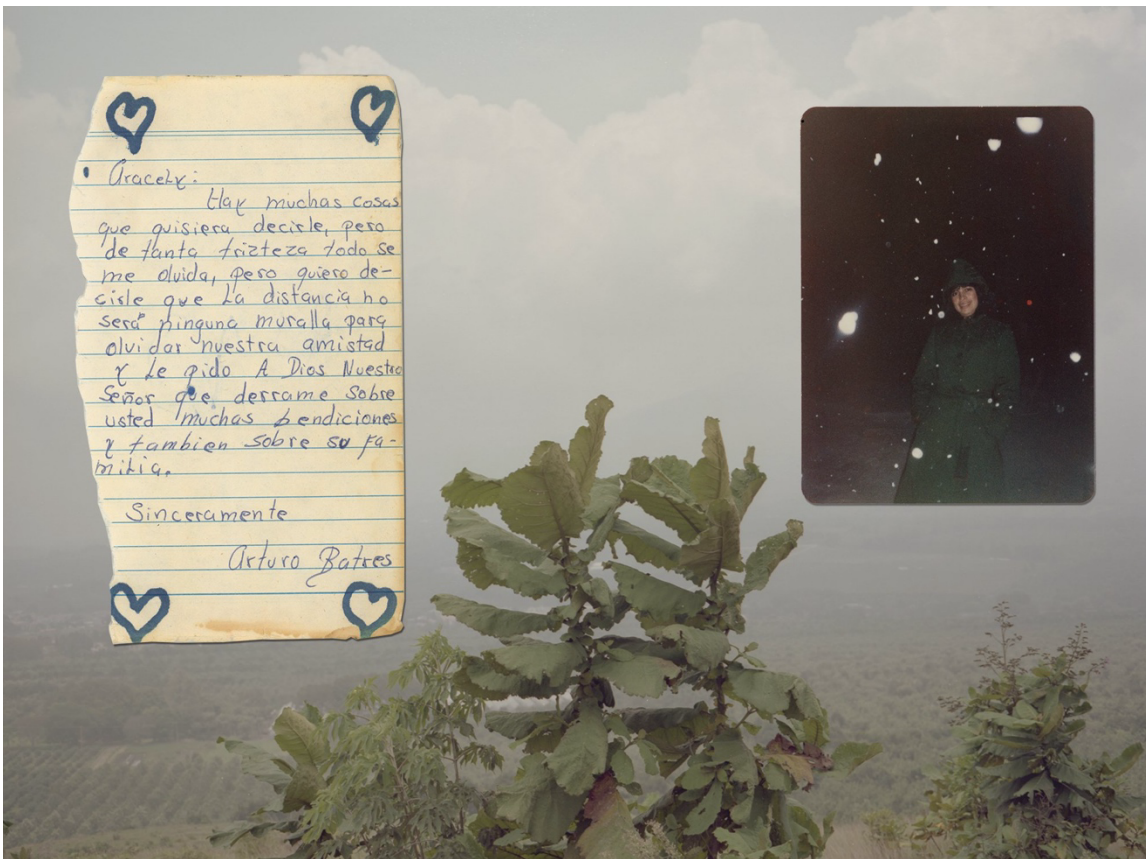 Aracely:
Hay muchas cosas
que quisiera decirle, pero
de tanta trizteza todo se
me olvida, pero quiero de-
cirle que la distancia no
será ninguna muralla para
olvidar nuestra amistad
y le pido A Dios Nuestro
Señor que derrame sobre
usted muchas bendiciones
y tambien sobre su fa-
milia.
Sinceramente
Arturo Batres